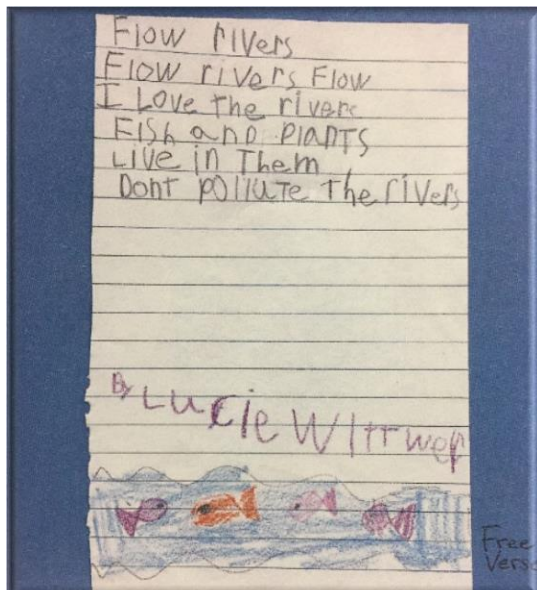 Flow rivers
Flow rivers Flow
I Love the rivers
Fish and Plants
Live in Them
Dont pollute The rivers
By Lucie Wittwer
Free
Verse